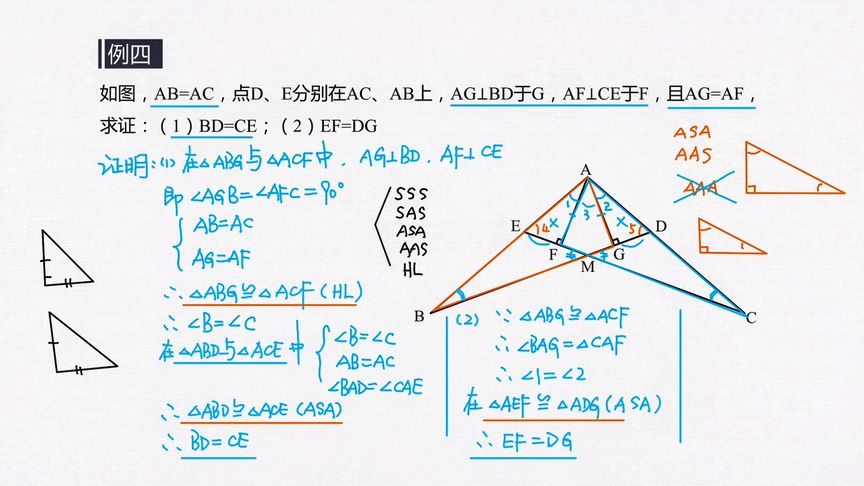 例四
如图，AB=AC，点D、E分别在AC、AB上，AG⊥BD于G，AF⊥CE于F，且AG=AF，
求证：（1）BD=CE；（2）EF=DG
证明:(1) 在△ABG与△ACF中, AG⊥BD, AF⊥CE
即 ∠AGB=∠AFC=90°
AB=AC
AG=AF
∴ △ABG≌△ACF (HL)
∴ ∠B=∠C
在△ABD与△ACE中
∠B=∠C
AB=AC
∠BAD=∠CAE
∴ △ABD≌△ACE (ASA)
∴ BD=CE
SSS
SAS
ASA
AAS
HL
ASA
AAS
AAA
A
1 2
3
E 4 × × 5 D
F G
M
B C
(2) ∵ △ABG≌△ACF
∴ ∠BAG=∠CAF
∴ ∠1=∠2
在 △AEF≌△ADG (ASA)
∴ EF=DG